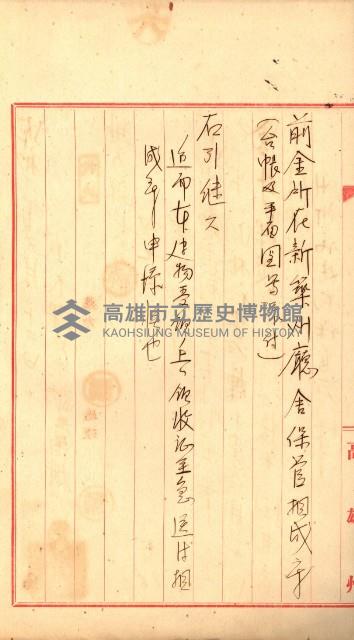 前金所在新築州廳舍保管相成度
(台帳及平面圖等添付)
右引継ク
追而本建物受領ノ上ハ領收證至急送付相
成度申添候也
高雄州
高雄市立歷史博物館
KAOHSIUNG MUSEUM OF HISTORY